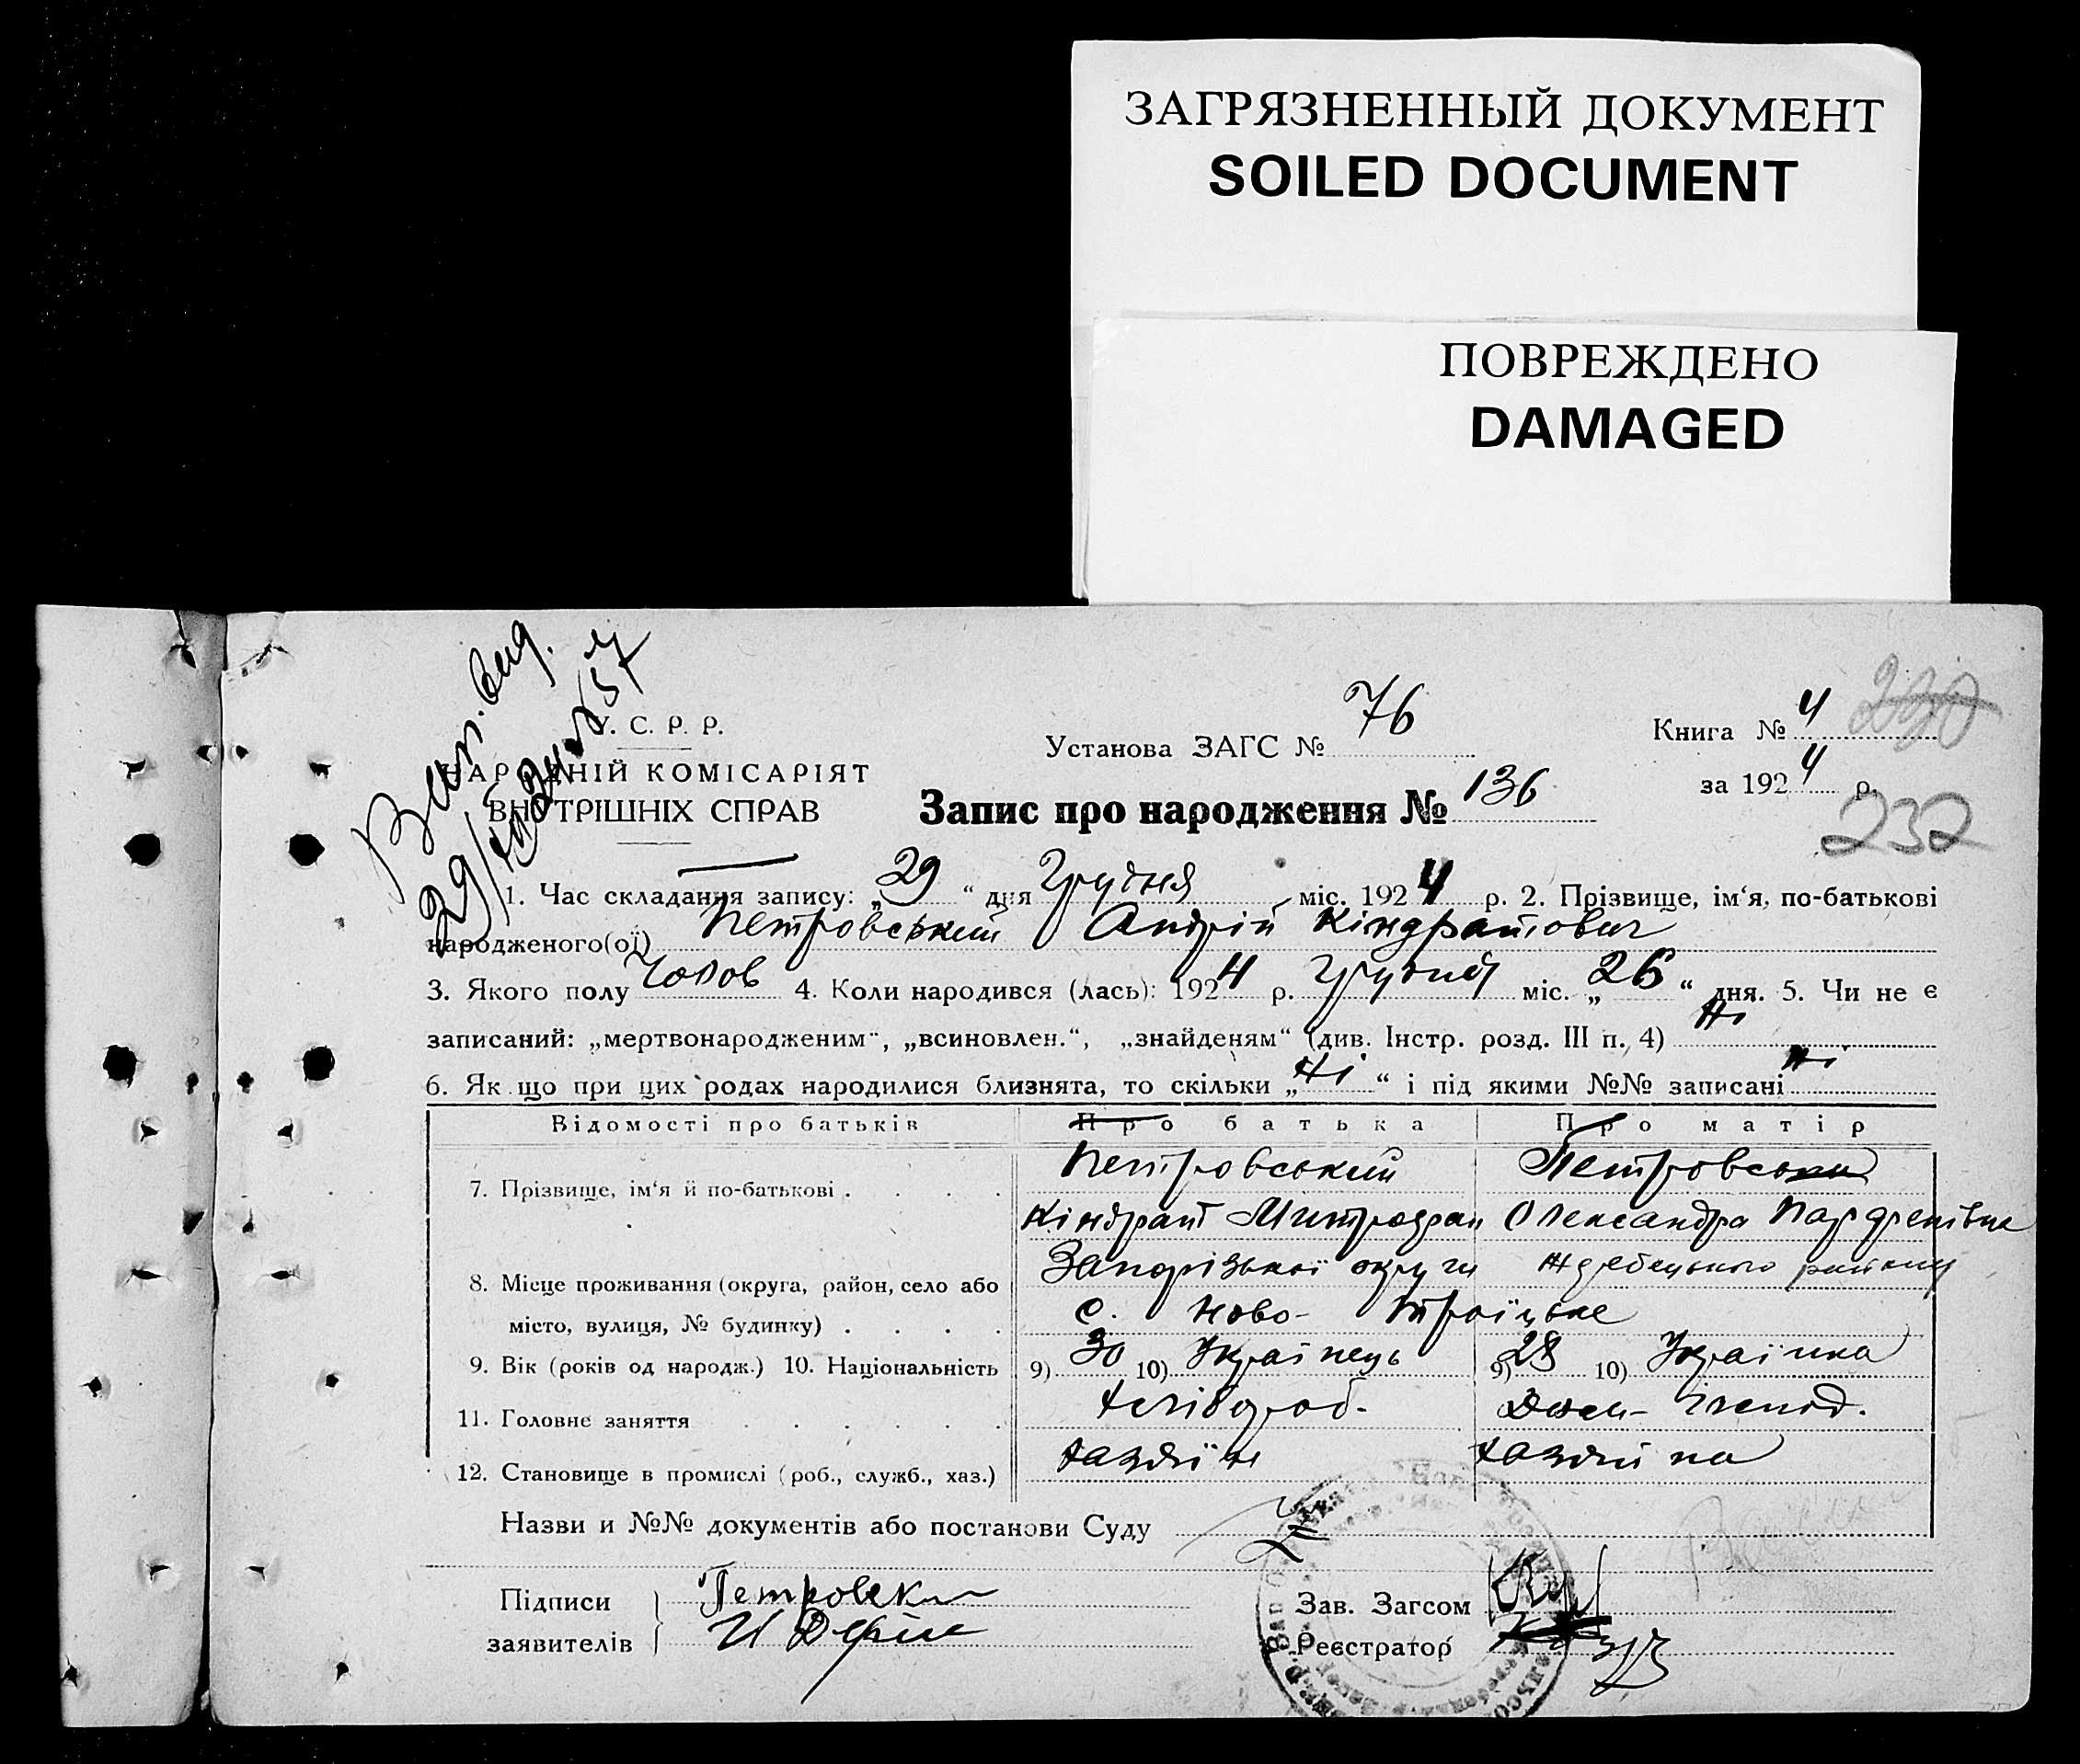 ЗАГРЯЗНЕННЫЙ ДОКУМЕНТ
SOILED DOCUMENT
ПОВРЕЖДЕНО
DAMAGED
У. С. Р. Р.
НАРОДНІЙ КОМІСАРІЯТ
ВНУТРІШНІХ СПРАВ
Установа ЗАГС № 76
Книга № 4 230
за 1924 р.
232
Запис про народження № 136
1. Час складання запису: „29“ дня Грудня міс. 1924 р. 2. Прізвище, ім‘я, по-батькові
народженого(ої) Петровський Андрій Кіндратович
3. Якого полу Чолов 4. Коли народився (лась): 1924 р. Грудня міс. „26“ дня. 5. Чи не є
записаний: „мертвонародженим“, „всиновлен.“, „знайденям“ (див. Інстр. розд. III п. 4) Ні
6. Як що при цих родах народилися близнята, то скільки „Ні“ і під якими №№ записані Ні
Відомості про батьків Про батька Про матір
7. Прізвище, ім‘я й по-батькові . . . . Петровський Петровська
Кіндрат Митрофан Олександра Парфенівна
8. Місце проживання (округа, район, село або Запорізької округи району
місто, вулиця, № будинку) . . . . с. Ново-Троїцьке
9. Вік (років од народж.) 10. Національність 9) 30 10) Українець 9) 28 10) Українка
11. Головне заняття . . . . . Хлібороб.
12. Становище в промислі (роб., служб., хаз.) Хазяїн Хазяйка
Назви и №№ документів або постанови Суду
Підписи
заявителів
Зав. Загсом
Реєстратор